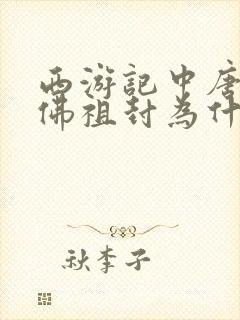 西游記中唐
佛祖封為什
秋李子